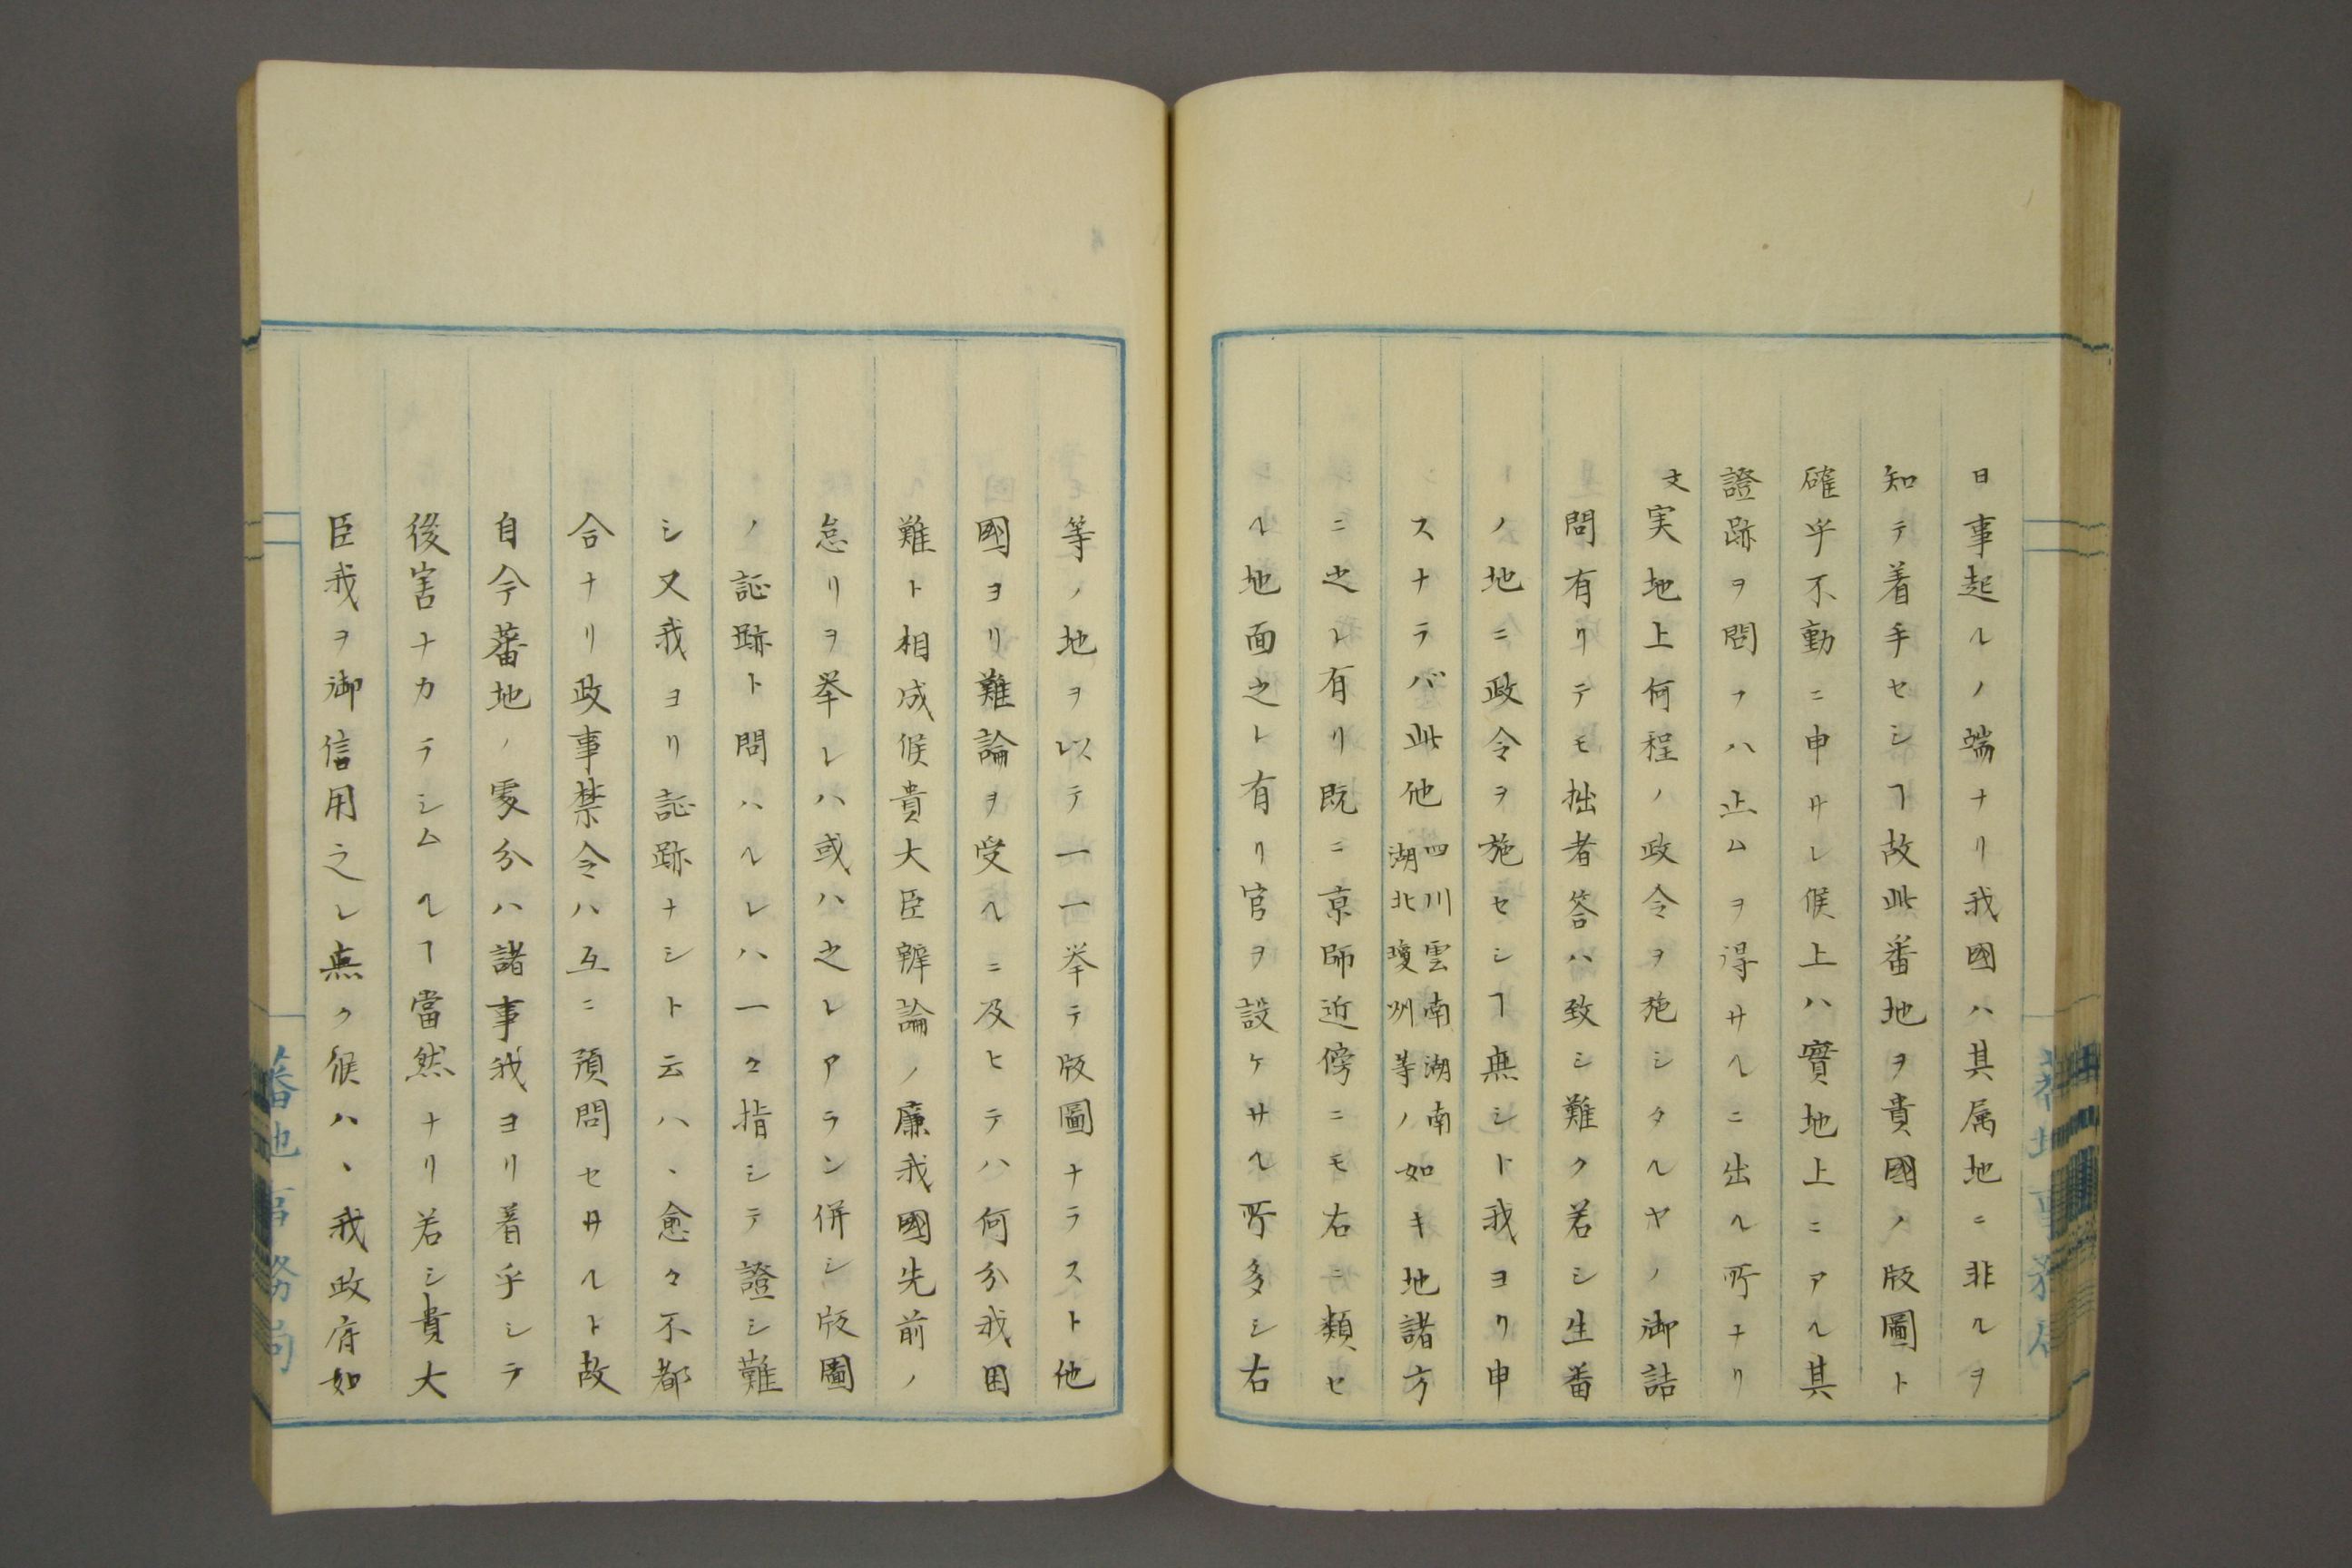 日事起ルノ端ナリ我國ハ其属地ニ非ルヲ
知テ着手セシヿ故此番地ヲ貴國ノ版圖ト
確乎不動ニ申サレ候上ハ實地上ニアル其
證跡ヲ問フハ止ムヲ得サルニ出ル所ナリ
文実地上何程ノ政令ヲ施シタルヤノ御詰
問有リテモ拙者答ハ致シ難ク若シ生番
ノ地ニ政令ヲ施セシヿ無シト我ヨリ申
スナラバ此他四川雲南湖南湖北瓊州等ノ如キ地諸方
ニ之レ有リ既ニ京師近傍ニモ右ニ類セ
ル地面之レ有リ官ヲ設ケサル所多シ右
等ノ地ヲ以テ一一挙テ版圖ナラスト他
國ヨリ難論ヲ受ルニ及ヒテハ何分我困
難ト相成候貴大臣辨論ノ廉我國先前ノ
怠リヲ挙レハ或ハ之レアラン併シ版圖
ノ証跡ト問ハルレハ一々指シテ證シ難
シ又我ヨリ証跡ナシト云ハヽ愈々不都
合ナリ政事禁令ハ互ニ預問セサルト故
自今蕃地ノ処分ハ諸事我ヨリ着手シテ
後害ナカラシムルヿ當然ナリ若シ貴大
臣我ヲ御信用之レ無ク候ハヽ我政府如
蕃地事務局